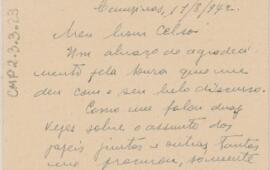 Campinas, 17/8/942.
Meu bom Celso
Um abraço de agradeci
mento pela honra que me
deu com o seu belo discurso.
Como me falou duas
vezes sobre o assunto dos
papéis juntos e outras tantas
me procurou, somente
CMP2.3.3.23